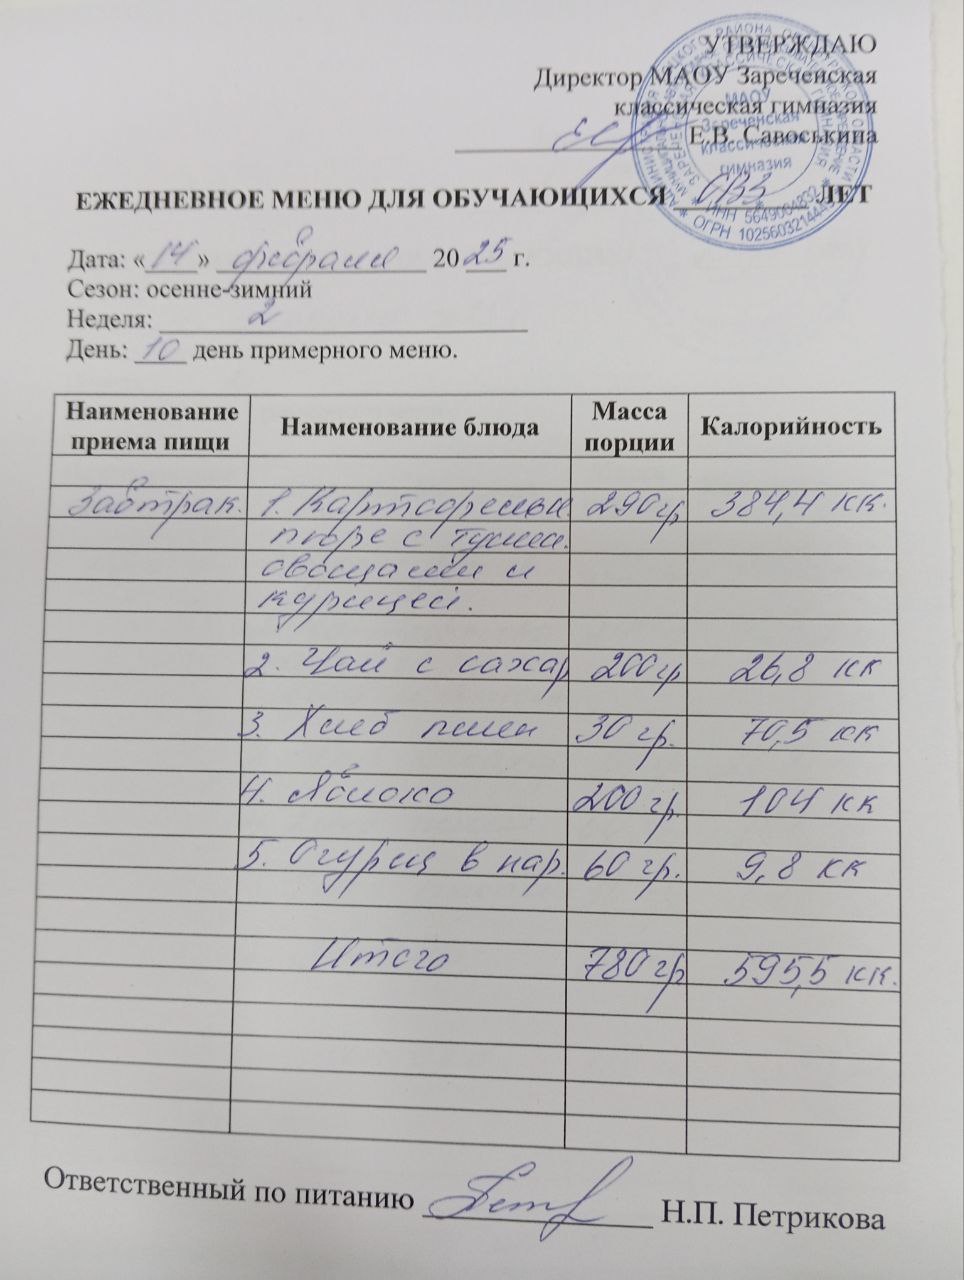 УТВЕРЖДАЮ
Директор МАОУ Зареченская
классическая гимназия
Е.В. Савоськина
МАОУ
Зареченская
классическая
гимназия
ЕЖЕДНЕВНОЕ МЕНЮ ДЛЯ ОБУЧАЮЩИХСЯ ОВЗ ЛЕТ
Дата: «14» февраля 2025 г.
Сезон: осенне-зимний
Неделя: 2
День: 10 день примерного меню.
Наименование приема пищи Наименование блюда Масса порции Калорийность
Завтрак. 1. Картофельн 290гр 384,4 кк.
пюре с тушен.
овощами и
курицей.
2. Чай с сахар 200гр 26,8 кк
3. Хлеб пшен 30 гр. 70,5 кк
4. Яблоко 200 гр. 104 кк
5. Огурец в нар. 60 гр. 9,8 кк
Итого 780 гр 595,5 кк.
Ответственный по питанию Н.П. Петрикова